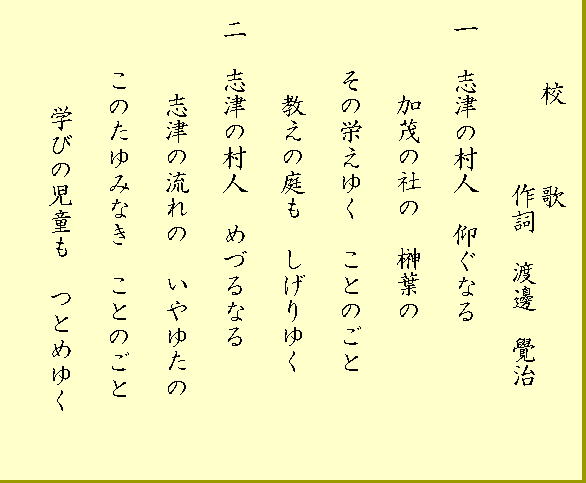 校　歌
作詞　渡邊　覺治
一　志津の村人　仰ぐなる
加茂の社の　榊葉の
その栄えゆく　ことのごと
教えの庭も　しげりゆく
二　志津の村人　めづるなる
志津の流れの　いやゆたの
このたゆみなき　ことのごと
学びの児童も　つとめゆく